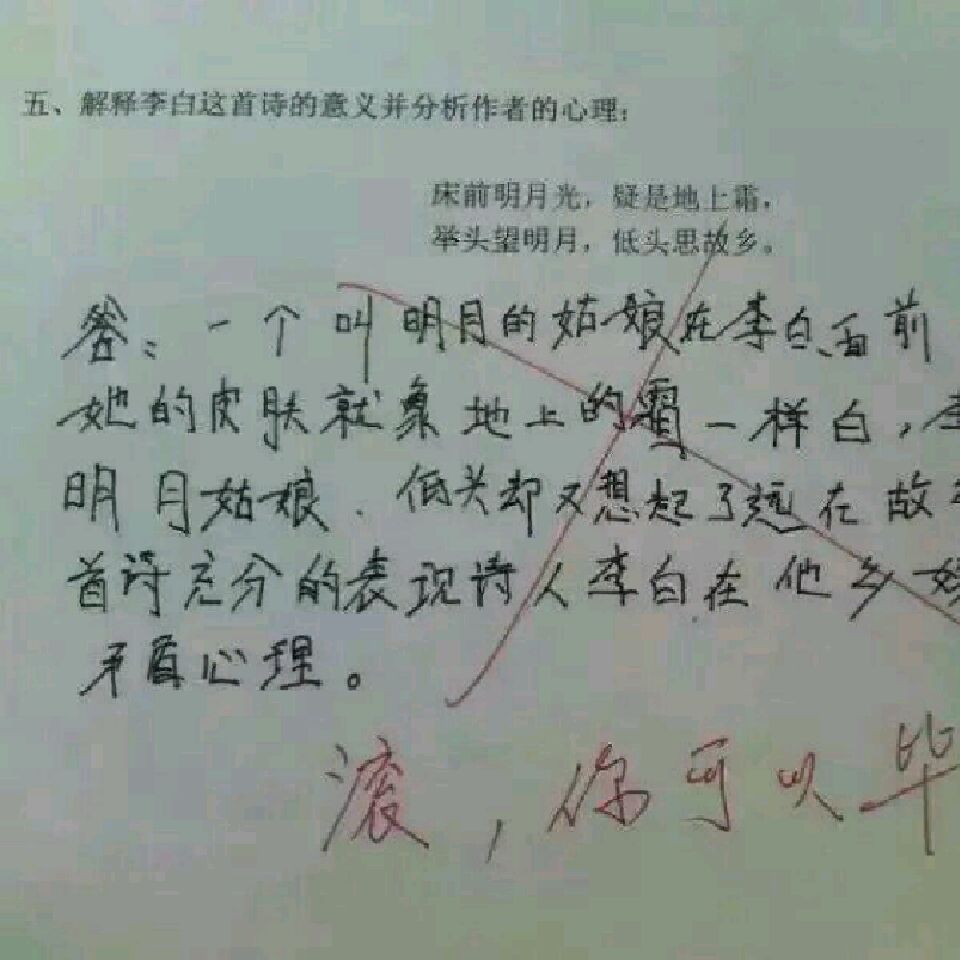 五、解释李白这首诗的意义并分析作者的心理:
床前明月光，疑是地上霜，
举头望明月，低头思故乡。
答：一个叫明月的姑娘在李白面前
她的皮肤就象地上的霜一样白，
明月姑娘．低头却又想起了远在故
首诗充分的表现诗人李白在他乡
矛盾心理。
滚，你可以毕